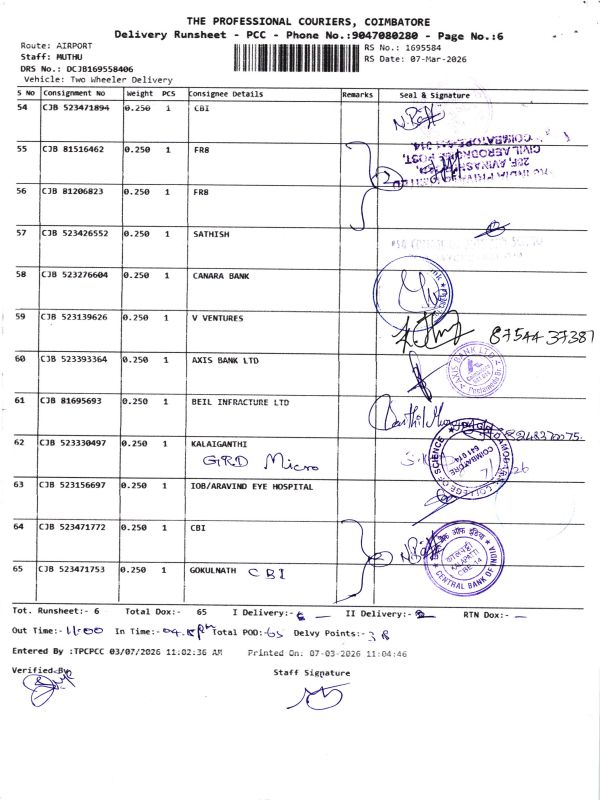 THE PROFESSIONAL COURIERS, COIMBATORE
Delivery Runsheet - PCC - Phone No.:9047080280 - Page No.:6
Route: AIRPORT
Staff: MUTHU
DRS No.: DCJB169558406
Vehicle: Two Wheeler Delivery
RS No.: 1695584
RS Date: 07-Mar-2026
S No Consignment No Weight PCS Consignee Details Remarks Seal & Signature
54 CJB 523471894 0.250 1 CBI
55 CJB 81516462 0.250 1 FR8
56 CJB 81206823 0.250 1 FR8
57 CJB 523426552 0.250 1 SATHISH
58 CJB 523276604 0.250 1 CANARA BANK
59 CJB 523139626 0.250 1 V VENTURES
87544 37387
60 CJB 523393364 0.250 1 AXIS BANK LTD
61 CJB 81695693 0.250 1 BEIL INFRACTURE LTD
62 CJB 523330497 0.250 1 KALAIGANTHI
GRD Micro
63 CJB 523156697 0.250 1 IOB/ARAVIND EYE HOSPITAL
64 CJB 523471772 0.250 1 CBI
65 CJB 523471753 0.250 1 GOKULNATH CBI
CENTRAL BANK OF INDIA
Tot. Runsheet:- 6 Total Dox:- 65 I Delivery:- II Delivery:- RTN Dox:-
Out Time:- 11:00 In Time:- Total POD:- 65 Delvy Points:- 38
Entered By :TPCPCC 03/07/2026 11:02:36 AM Printed On: 07-03-2026 11:04:46
Verified By
Staff Signature